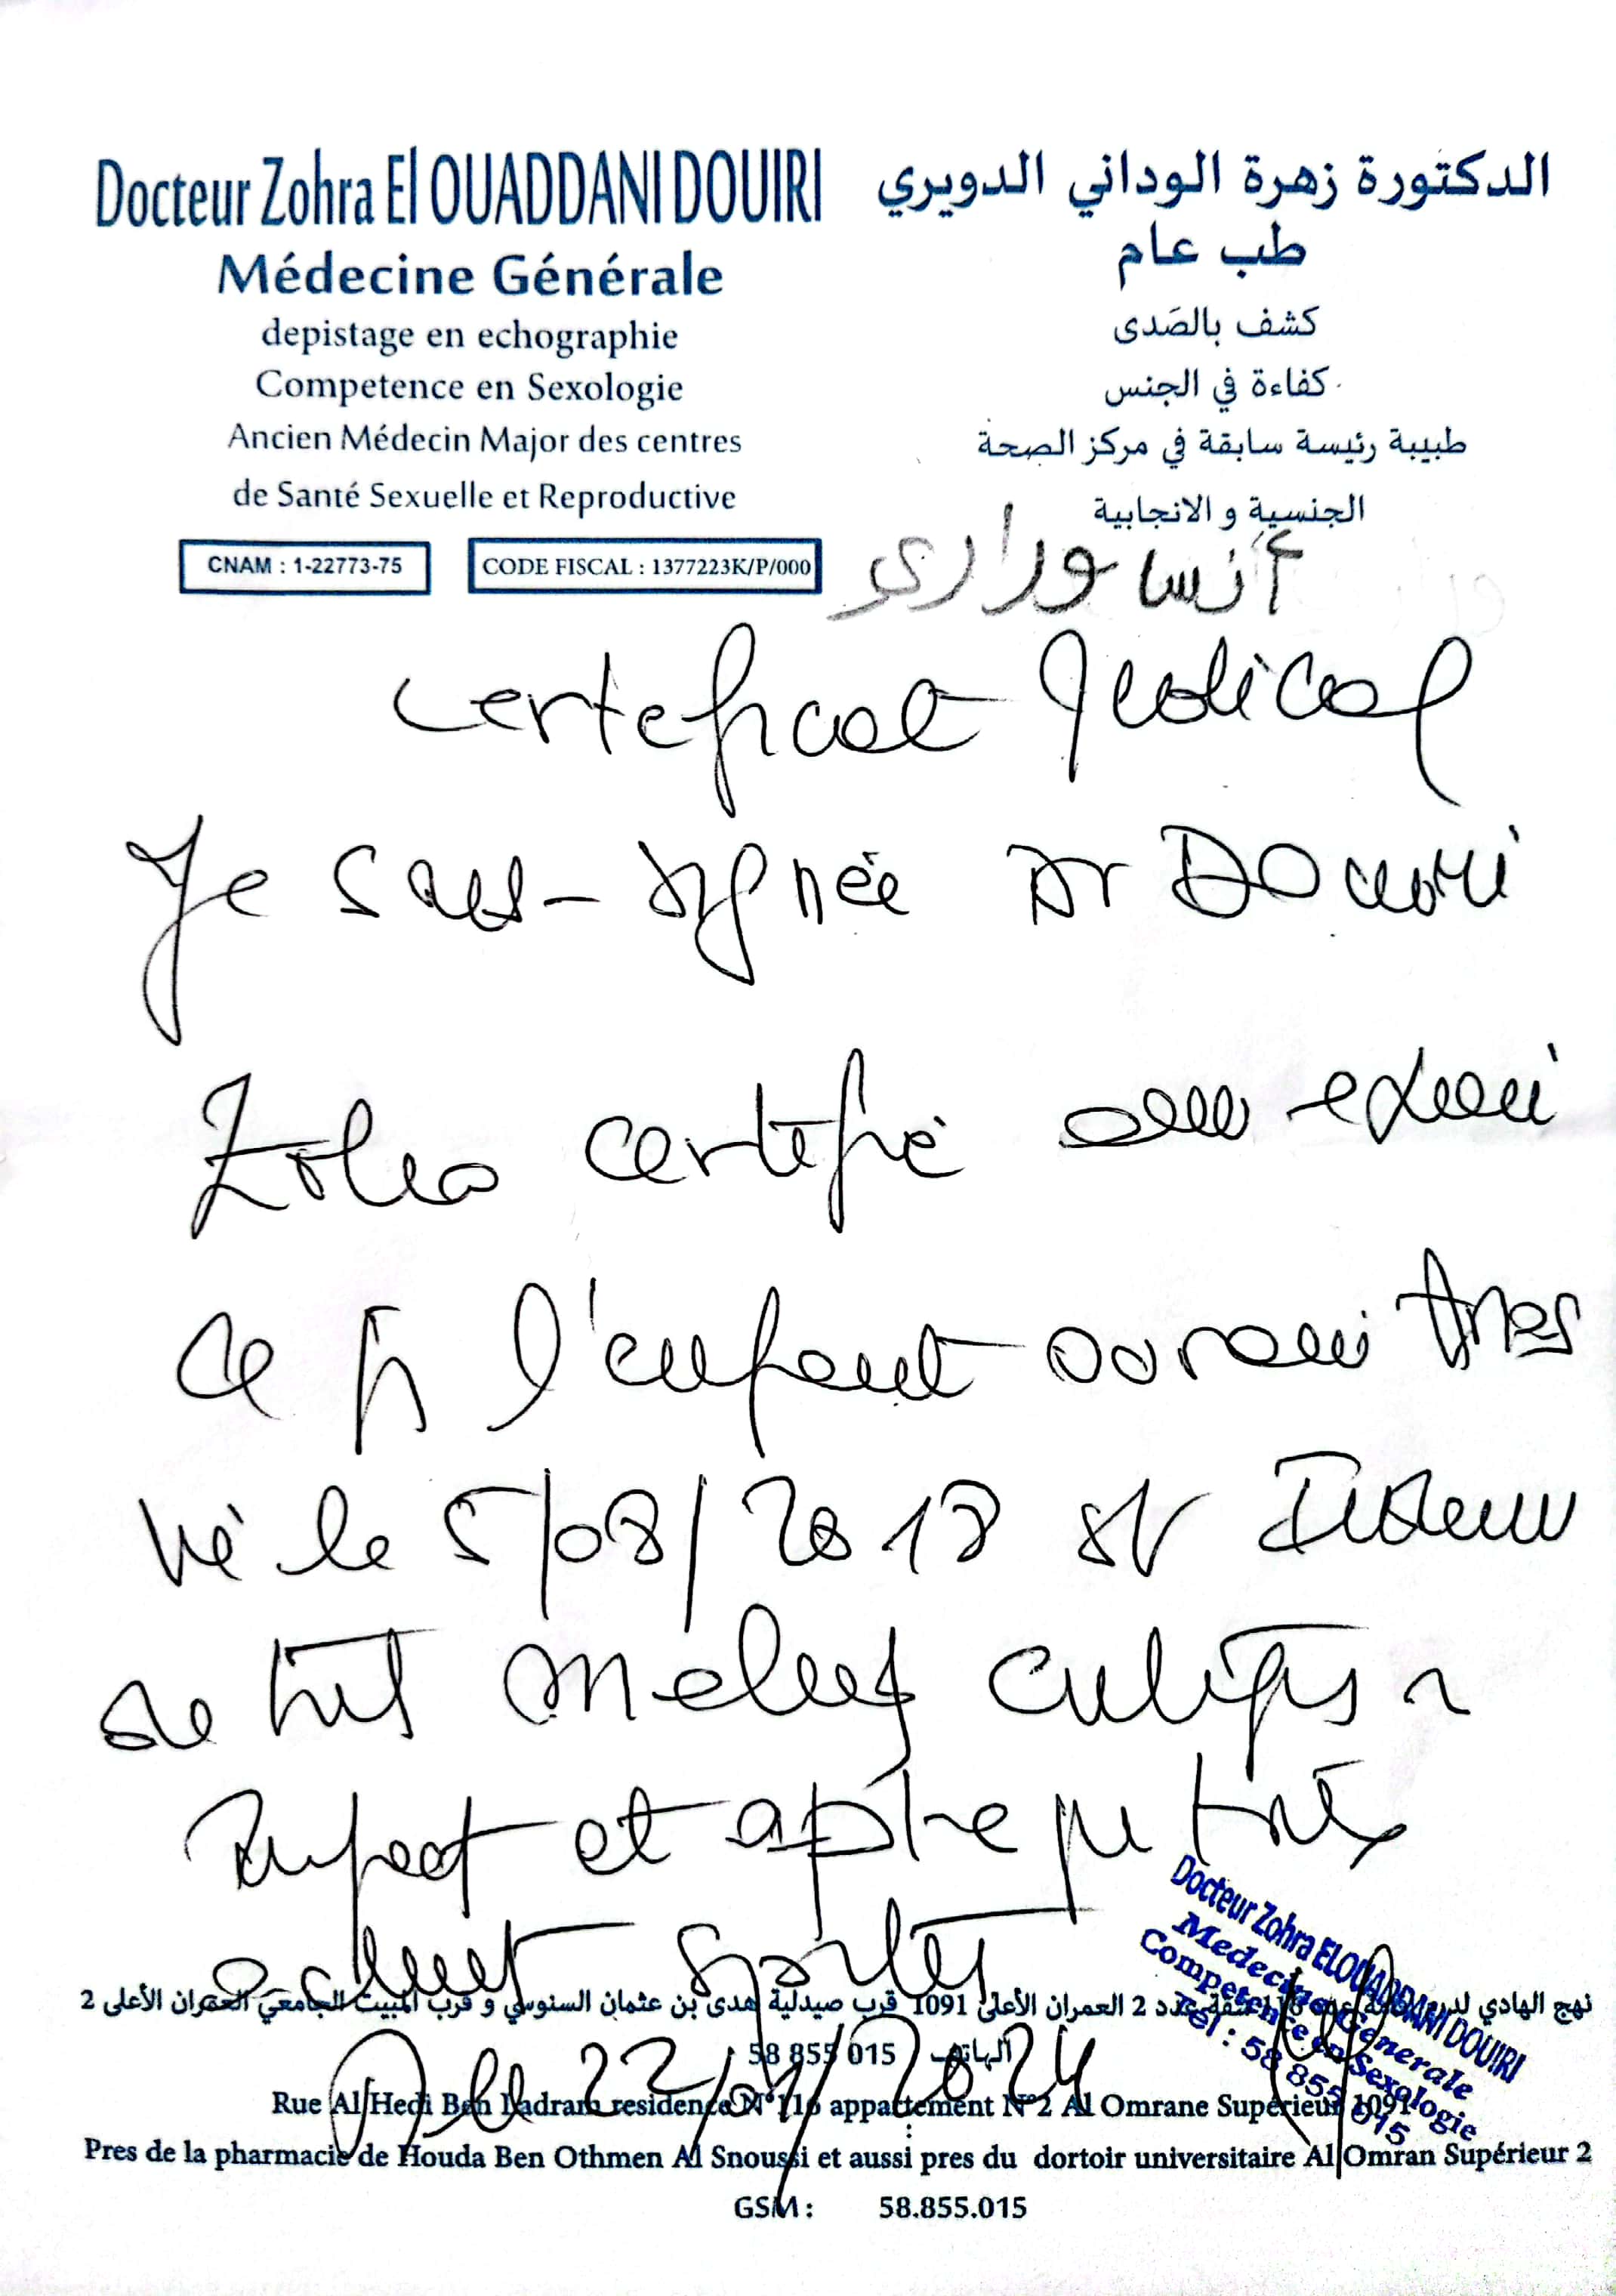 Docteur Zohra El OUADDANI DOUIRI
Médecine Générale
depistage en echographie
Competence en Sexologie
Ancien Médecin Major des centres
de Santé Sexuelle et Reproductive
CNAM : 1-22773-75
CODE FISCAL : 1377223K/P/000
الدكتورة زهرة الوداني الدويري
طب عام
كشف بالصَدى
كفاءة في الجنس
طبيبة رئيسة سابقة في مركز الصحة
الجنسية و الانجابية
أنس وراري
certeficat Medical
Je sous-signée Dr DOuiri
Zohra certifie
ce jr l'enfant Anes
Né le 5/08/2018 st Indemne
de tt maladies
et apte
sportes
نهج الهادي عدد 2 العمران الأعلى 1091 قرب صيدلية هدى بن عثمان السنوسي و قرب المبيت الجامعي العمران الأعلى 2
الهاتف : 58 855 015
le 22/09/2024
Rue Al Hedi Ben Ladram residence N°116 appartement N°2 Al Omrane Supérieur 1091
Pres de la pharmacie de Houda Ben Othmen Al Snoussi et aussi pres du dortoir universitaire Al Omran Supérieur 2
GSM : 58.855.015
Docteur Zohra ELOUADDANI DOUIRI
Medecine Generale
Competence en Sexologie
Tél : 58 855 015